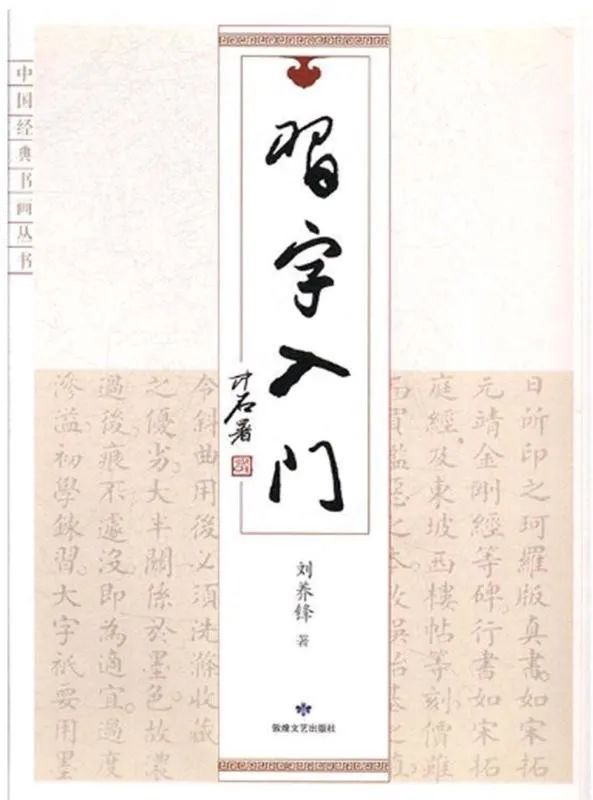 中国经典书画丛书
習字入门
才石署
刘养锋 著
敦煌文艺出版社
日所印之珂羅版真書如宋拓
元靖金剛經等碑行書如宋拓
庭經及東坡西樓帖等刻價雖
今斜曲用後必須洗滌收藏
之優劣大半關係於墨色故濃
過後痕不遽沒即為適宜過度
滲溢初學錬習大字祇要用墨